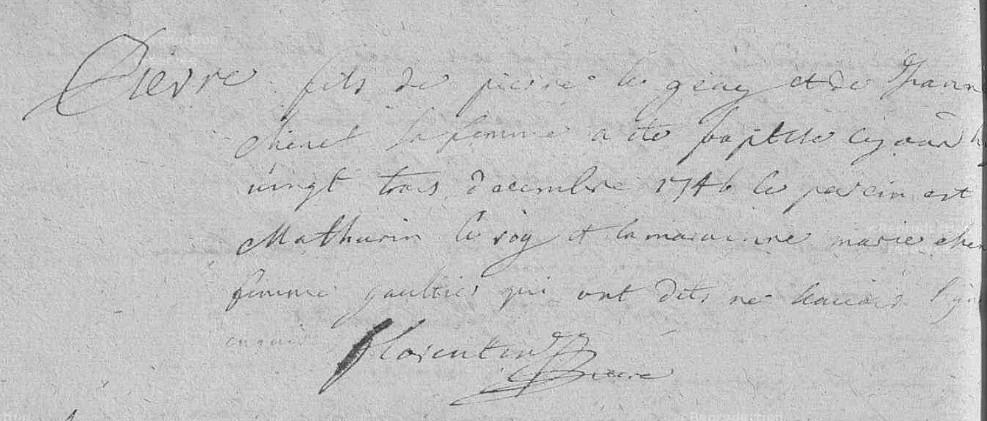 Pierre fils de pierre le geay et de Jeanne
chenel sa femme a été baptisé ce jourd
vingt trois decembre 1746 le parein est
Mathurin le roy et la maraine marie chen
femme gaultier qui ont dits ne scavoir sign
enquis Florentin